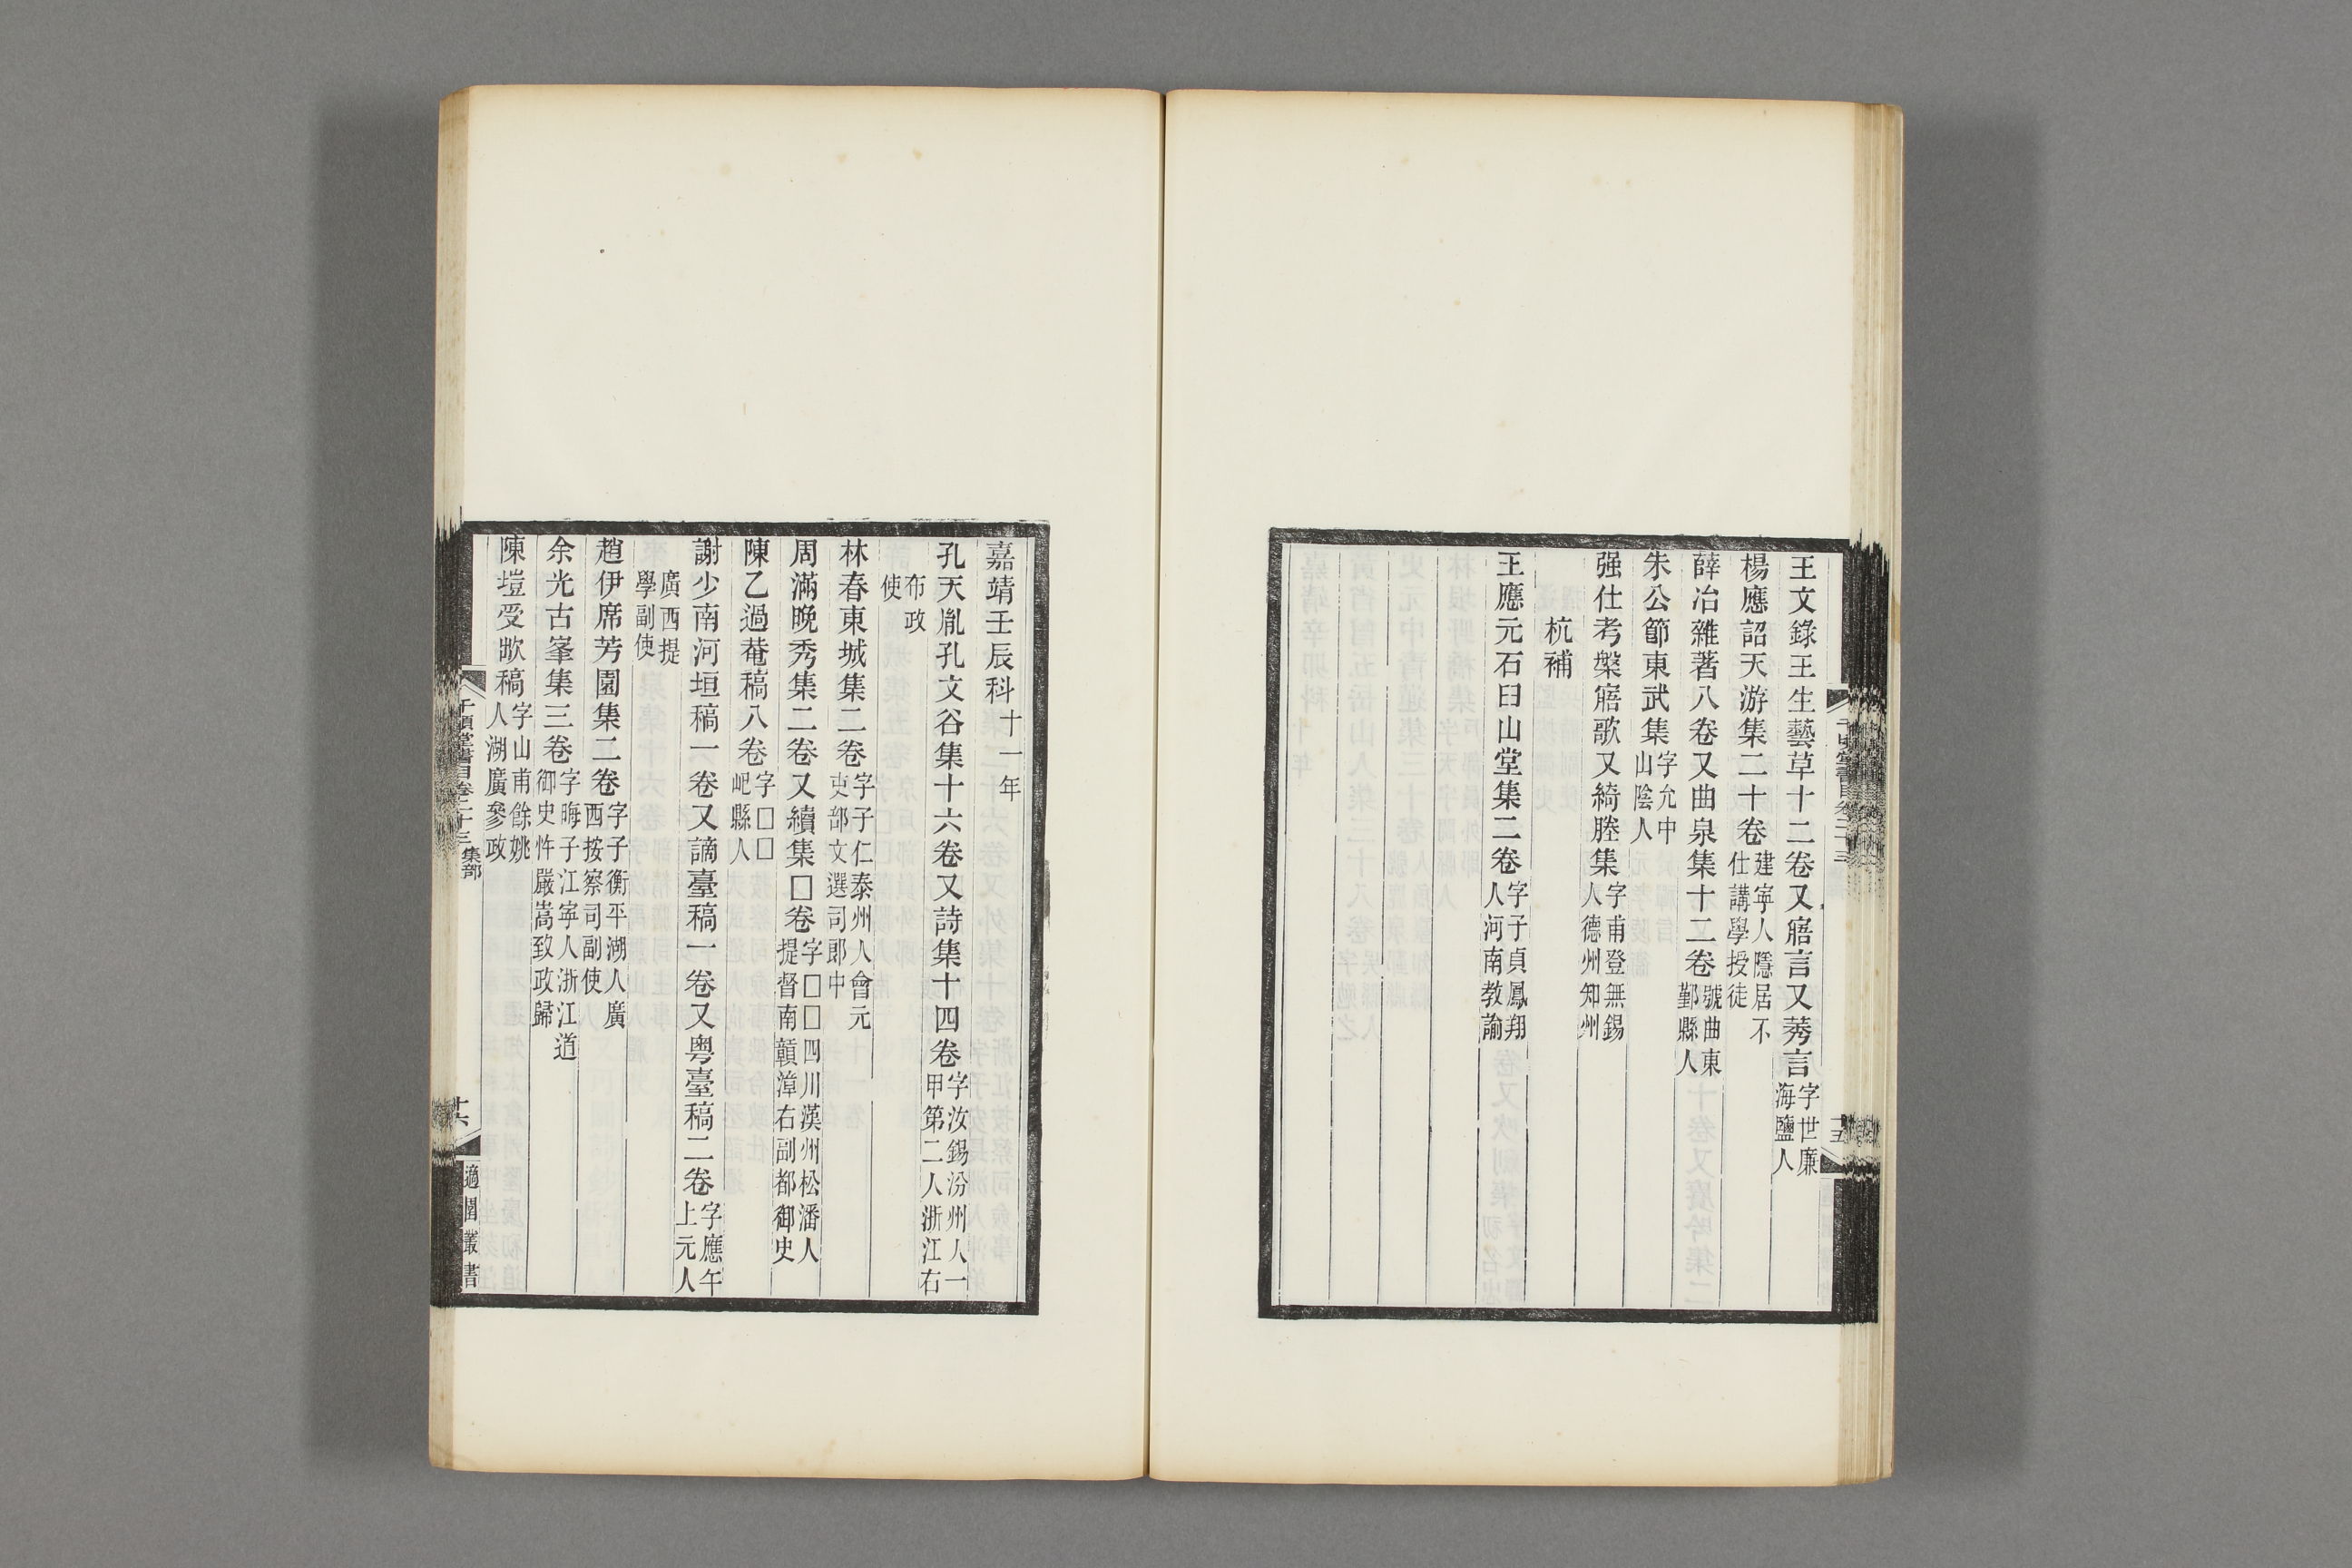 王文錄王生藝草十二卷又寤言又莠言字世廉海鹽人
楊應詔天游集二十卷建寧人隱居不仕講學授徒
薛冶雜著八卷又曲泉集十二卷號曲東鄞縣人
朱公節東武集字允中山陰人
强仕考槃寤歌又綺塍集字甫登無錫人德州知州
杭補
王應元石臼山堂集二卷字子貞鳳翔人河南教諭
十五
嘉靖壬辰科十一年
孔天胤孔文谷集十六卷又詩集十四卷字汝錫汾州人一甲第二人浙江右
布政使
林春東城集二卷字子仁泰州人會元吏部文選司郎中
周滿晚秀集二卷又續集□卷字□□四川漢州松潘人提督南贛漳右副都御史
陳乙過菴稿八卷字□□岷縣人
謝少南河垣稿一卷又謫臺稿一卷又粵臺稿二卷字應午上元人
廣西提學副使
趙伊席芳園集二卷字子衡平湖人廣西按察司副使
余光古峯集三卷字晦子江寧人浙江道御史忤嚴嵩致政歸
陳塏受歗稿字山甫餘姚人湖廣參政
千頃堂書目卷二十三 集部
十六
適園叢書